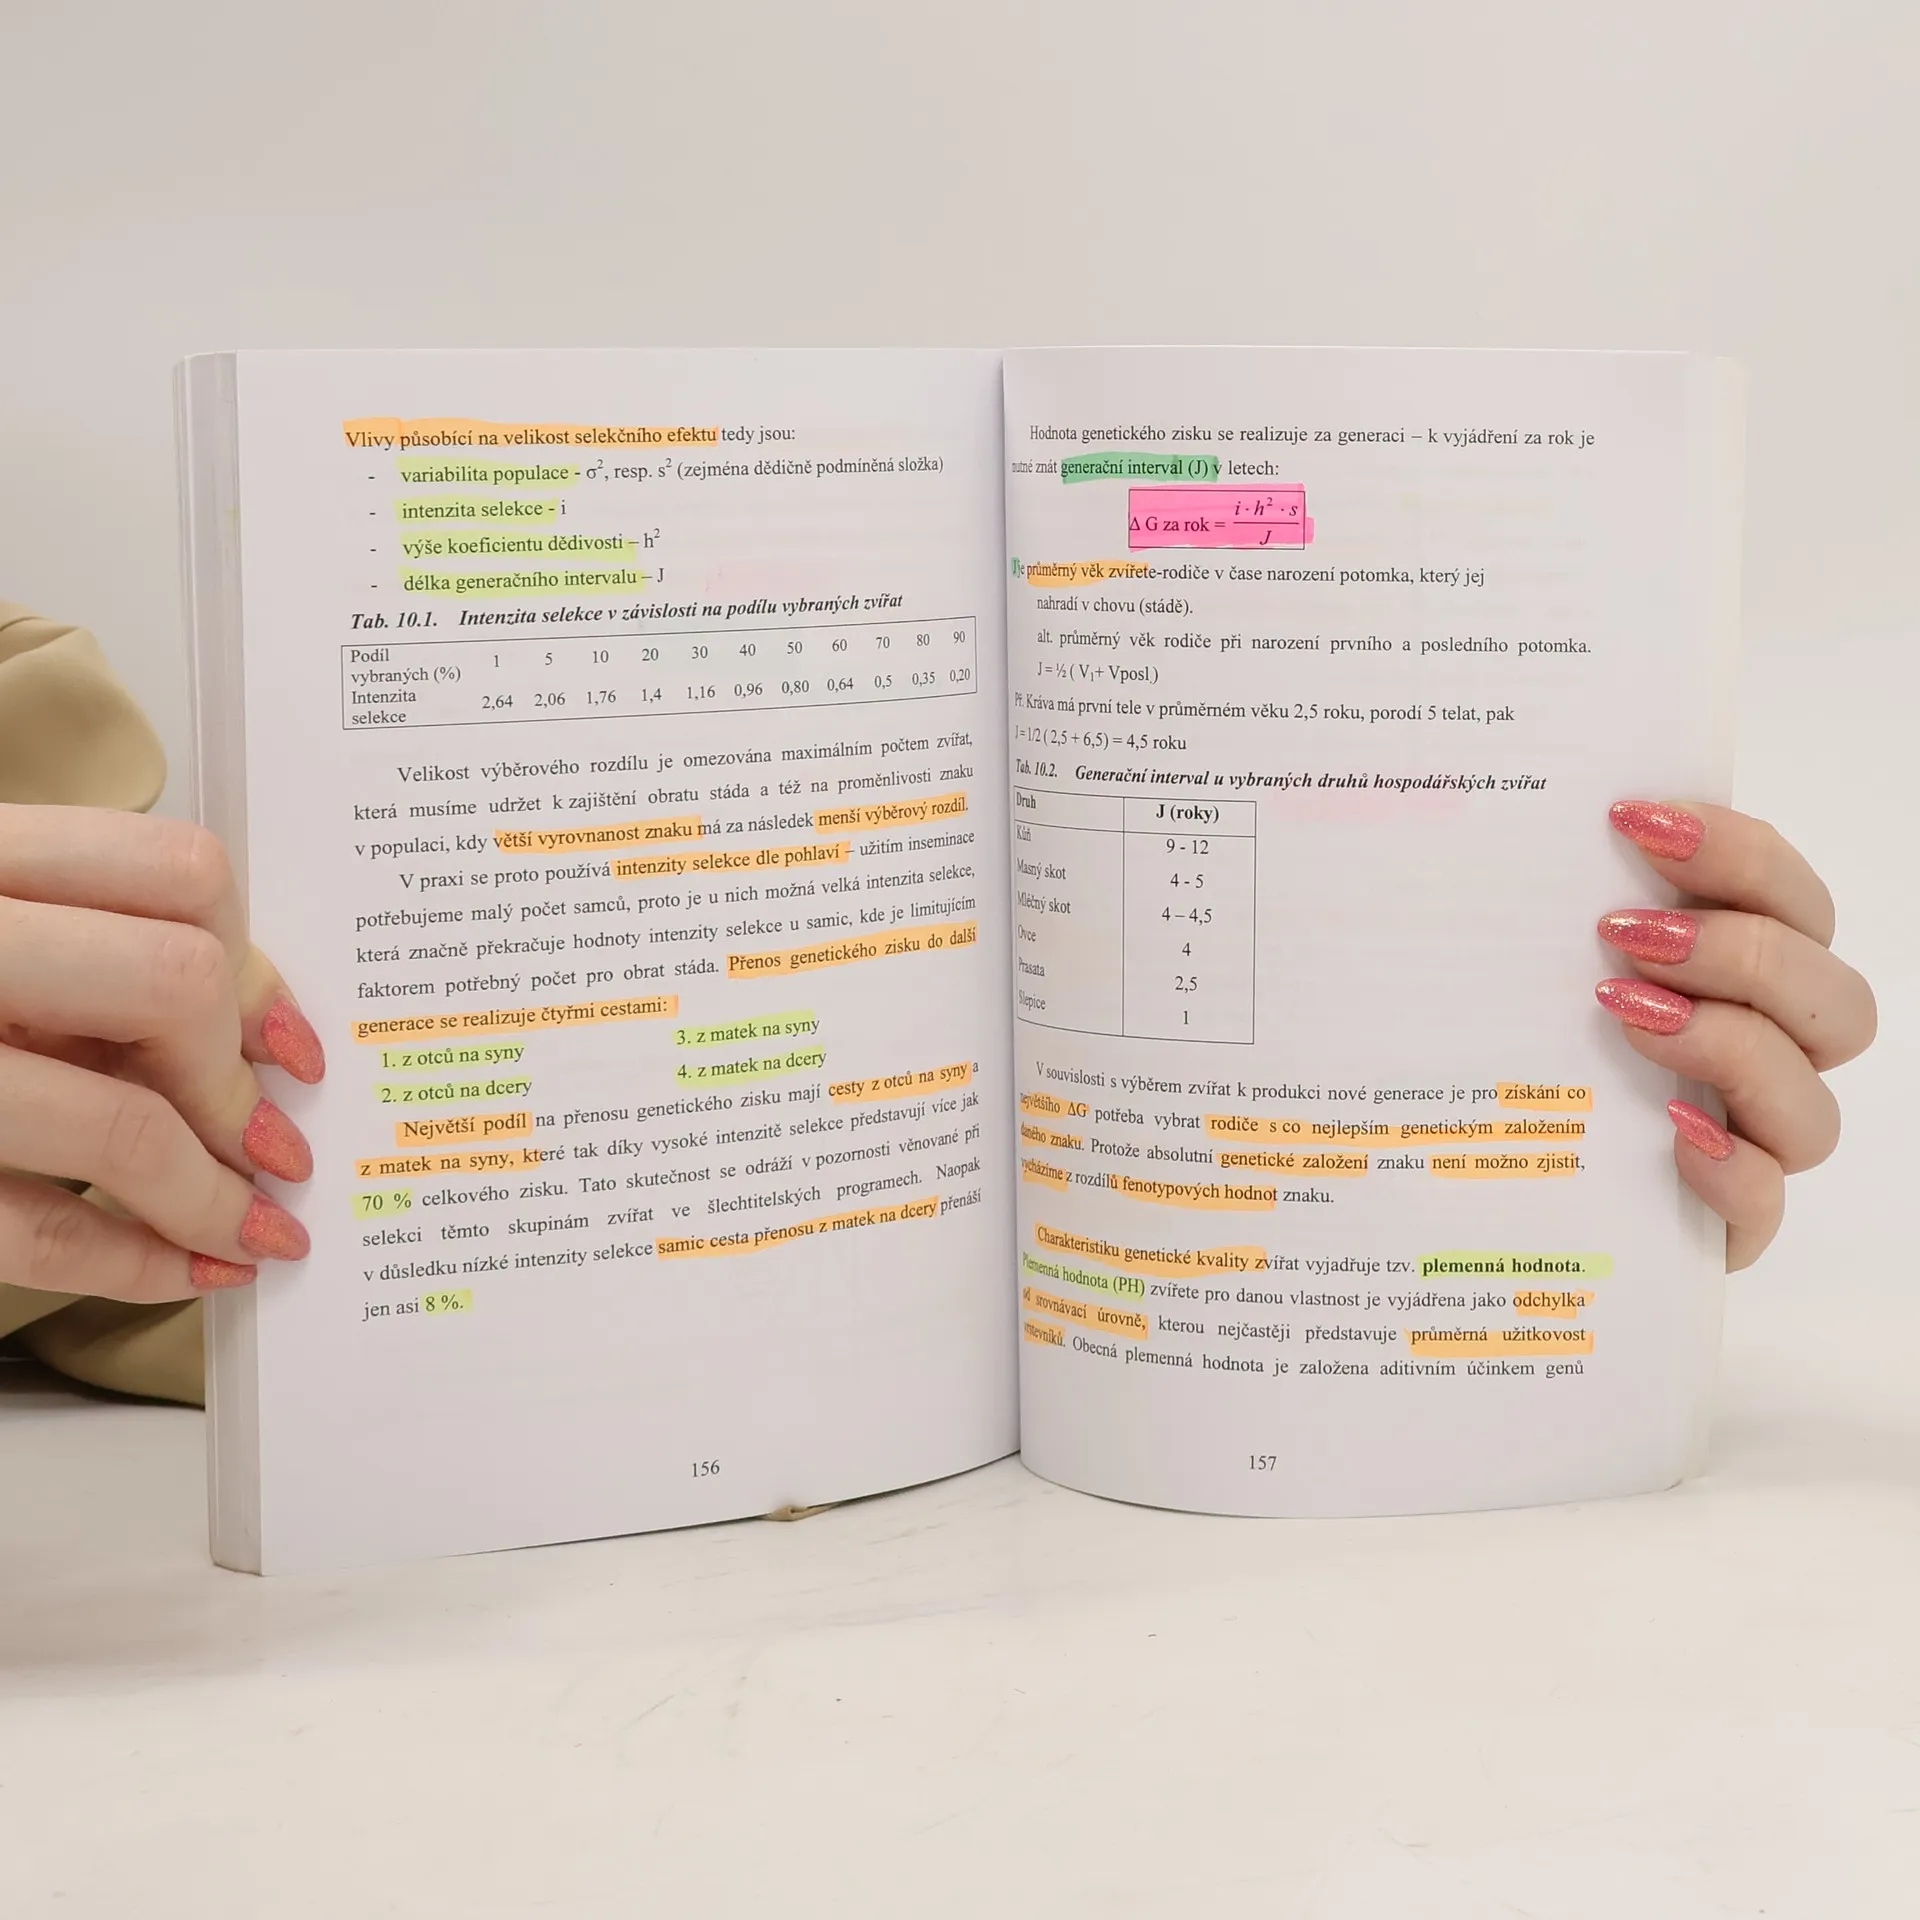 Vlivy působící na velikost selekčního efektu tedy jsou:
- variabilita populace - σ², resp. s² (zejména dědičně podmíněná složka)
- intenzita selekce - i
- výše koeficientu dědivosti – h²
- délka generačního intervalu – J
Tab. 10.1. Intenzita selekce v závislosti na podílu vybraných zvířat
Podíl vybraných (%) 1 5 10 20 30 40 50 60 70 80 90
Intenzita selekce 2,64 2,06 1,76 1,4 1,16 0,96 0,80 0,64 0,5 0,35 0,20
Velikost výběrového rozdílu je omezována maximálním počtem zvířat,
která musíme udržet k zajištění obratu stáda a též na proměnlivosti znaku
v populaci, kdy větší vyrovnanost znaku má za následek menší výběrový rozdíl.
V praxi se proto používá intenzity selekce dle pohlaví – užitím inseminace
potřebujeme malý počet samců, proto je u nich možná velká intenzita selekce,
která značně překračuje hodnoty intenzity selekce u samic, kde je limitujícím
faktorem potřebný počet pro obrat stáda. Přenos genetického zisku do další
generace se realizuje čtyřmi cestami:
1. z otců na syny
2. z otců na dcery
3. z matek na syny
4. z matek na dcery
Největší podíl na přenosu genetického zisku mají cesty z otců na syny a
z matek na syny, které tak díky vysoké intenzitě selekce představují více jak
70 % celkového zisku. Tato skutečnost se odráží v pozornosti věnované při
selekci těmto skupinám zvířat ve šlechtitelských programech. Naopak
v důsledku nízké intenzity selekce samic cesta přenosu z matek na dcery přenáší
jen asi 8 %.
156
Hodnota genetického zisku se realizuje za generaci – k vyjádření za rok je
nutné znát generační interval (J) v letech:
Δ G za rok = i · h² · s / J
J je průměrný věk zvířete-rodiče v čase narození potomka, který jej
nahradí v chovu (stádě).
alt. průměrný věk rodiče při narození prvního a posledního potomka.
J = ½ ( V₁+ Vposl.)
Př. Kráva má první tele v průměrném věku 2,5 roku, porodí 5 telat, pak
J = 1/2 ( 2,5 + 6,5) = 4,5 roku
Tab. 10.2. Generační interval u vybraných druhů hospodářských zvířat
Druh J (roky)
Kůň 9 - 12
Masný skot 4 - 5
Mléčný skot 4 – 4,5
Ovce 4
Prasata 2,5
Slepice 1
V souvislosti s výběrem zvířat k produkci nové generace je pro získání co
největšího ΔG potřeba vybrat rodiče s co nejlepším genetickým založením
daného znaku. Protože absolutní genetické založení znaku není možno zjistit,
vycházíme z rozdílů fenotypových hodnot znaku.
Charakteristiku genetické kvality zvířat vyjadřuje tzv. plemenná hodnota.
Plemenná hodnota (PH) zvířete pro danou vlastnost je vyjádřena jako odchylka
od srovnávací úrovně, kterou nejčastěji představuje průměrná užitkovost
vrstevníků. Obecná plemenná hodnota je založena aditivním účinkem genů
157